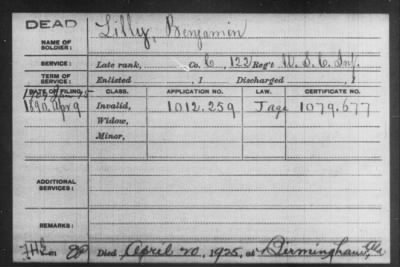 DEAD
NAME OF SOLDIER: Lilly, Benjamin
SERVICE: Late rank, Co. C, 122 Reg't U.S.C. Inf.
TERM OF SERVICE: Enlisted , 1 Discharged , 1
DATE OF FILING. CLASS. APPLICATION NO. LAW. CERTIFICATE NO.
1890, Apr 9 Invalid, 1012.259 1079.677
Widow,
Minor,
ADDITIONAL SERVICES:
REMARKS:
Died April 20, 1925, at Birmingham, Ala